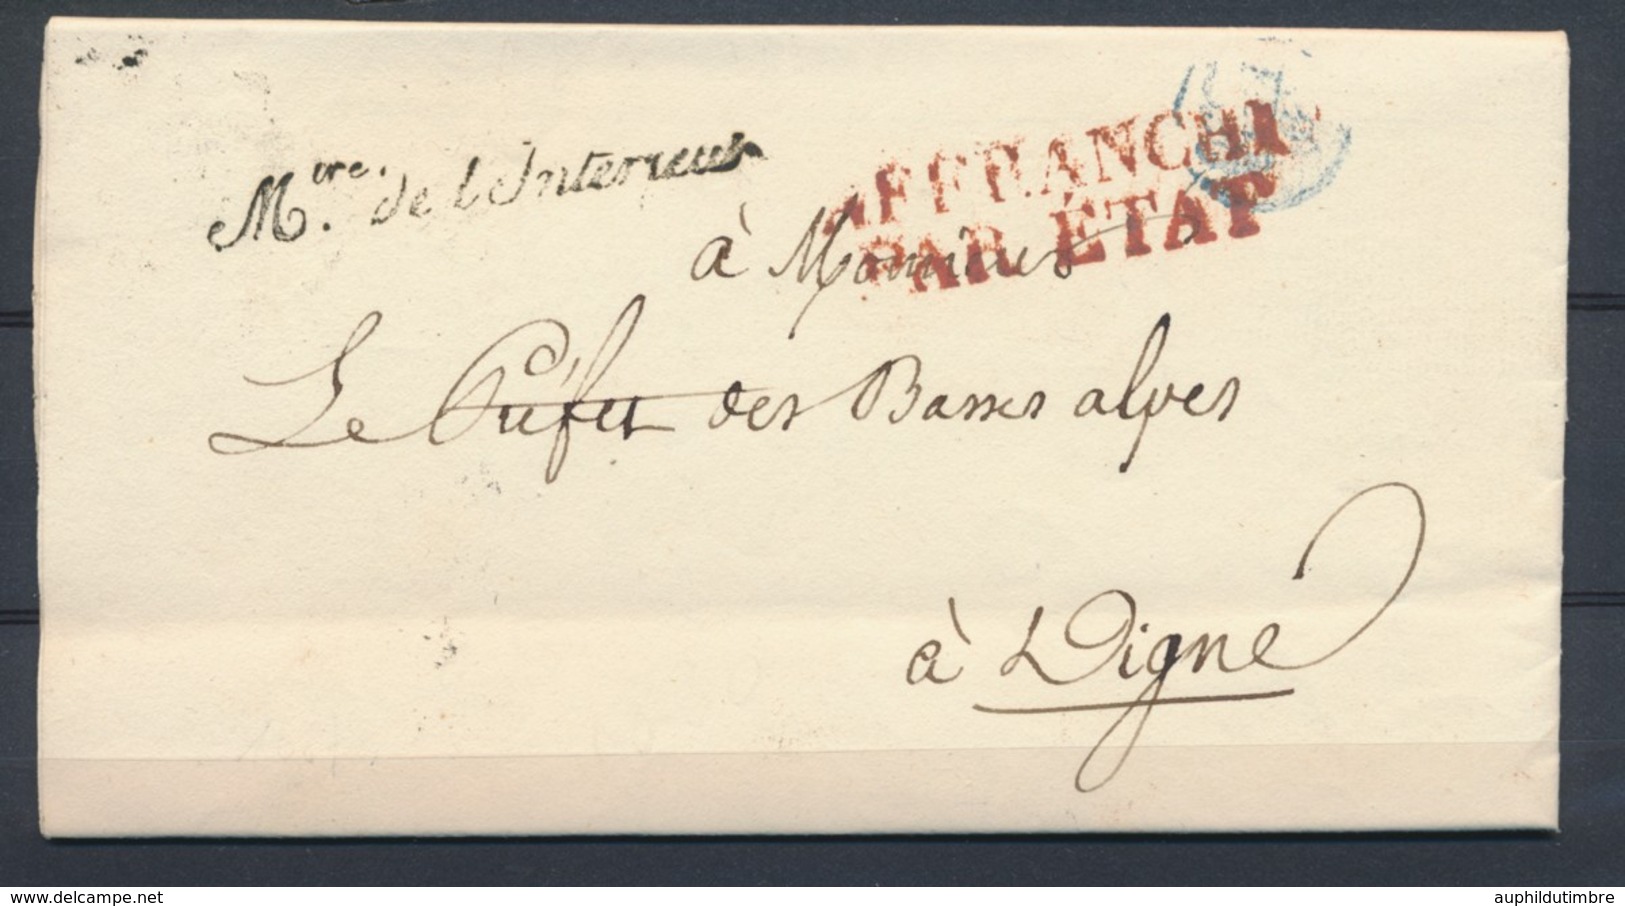 Mre. de l'Interieur
AFFRANCHI
PAR ÉTAT
à Monsieur
Le Préfet des Basses alpes
à Digne
auphildutimbre